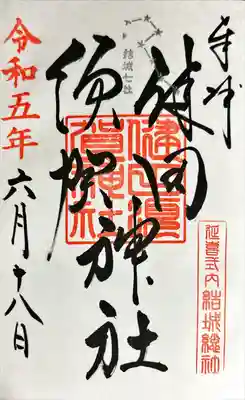 奉拝
延喜式内結城
結城七社
健田
須賀神社
健田須賀神社
令和五年六月十八日